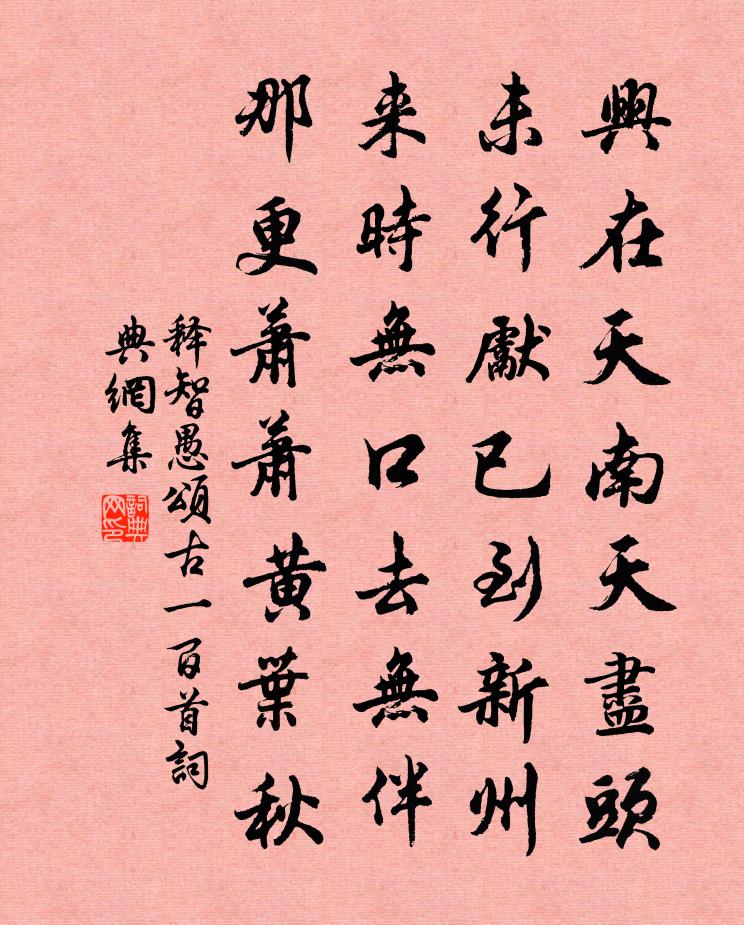 興在天南天盡頭
未行獻已到新州
来時無口去無伴
那更蕭蕭黄葉秋
释智愚頌古一百首詞
典網集
詞典
网印